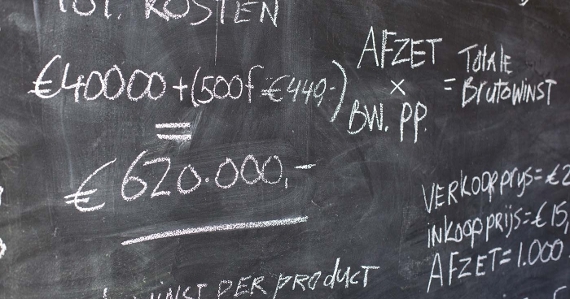 TOT. KOSTEN
€40000 + (500
= 
€ 620.000,-
AFZET
×
BW. PP.
= Totale
Brutowinst
VERKOOPPRIJS = €2
INKOOPPRIJS = €15,
AFZET = 1.000
WINST PER PRODUCT